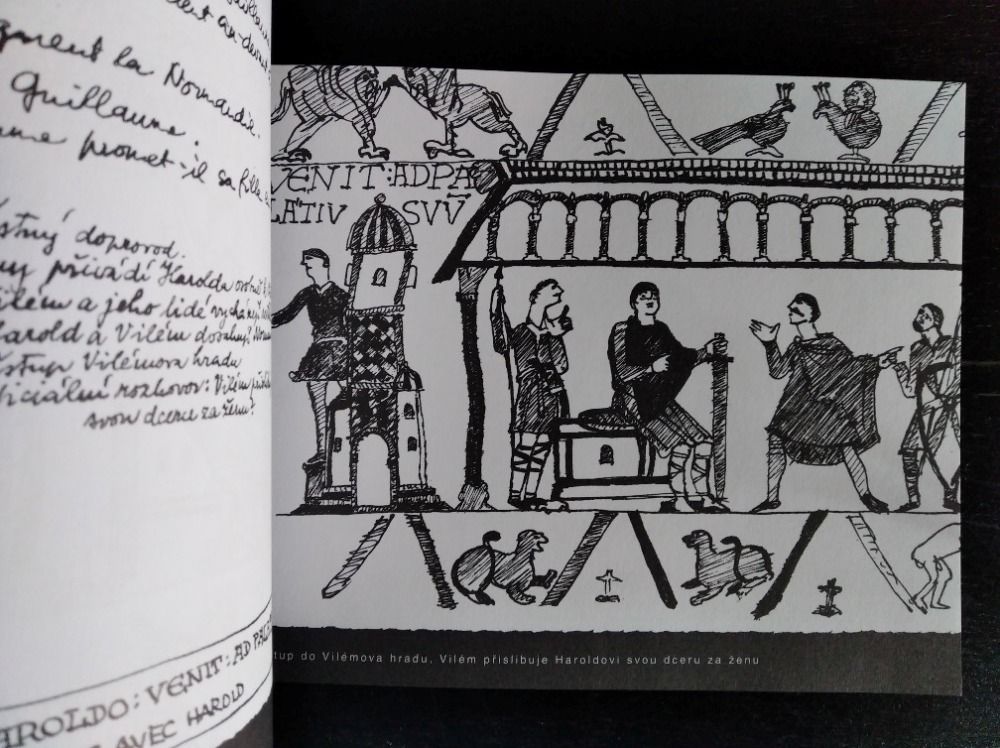 Guillaume
ent au-devant
gnent la Normandie.
Guillaume.
me promet-il sa fille
stný doprovod.
ny přivádí Harolda
ilém a jeho lidé vycházejí
arold a Vilém dosáhnou
stup Vilémova hradu
iciální rozhovor: Vilém
svou dceru za ženu?
AROLDO: VENIT: AD PALA
AVEC HAROLD
VENIT: AD PA
LATIV SVV̄
tup do Vilémova hradu. Vilém přislibuje Haroldovi svou dceru za ženu